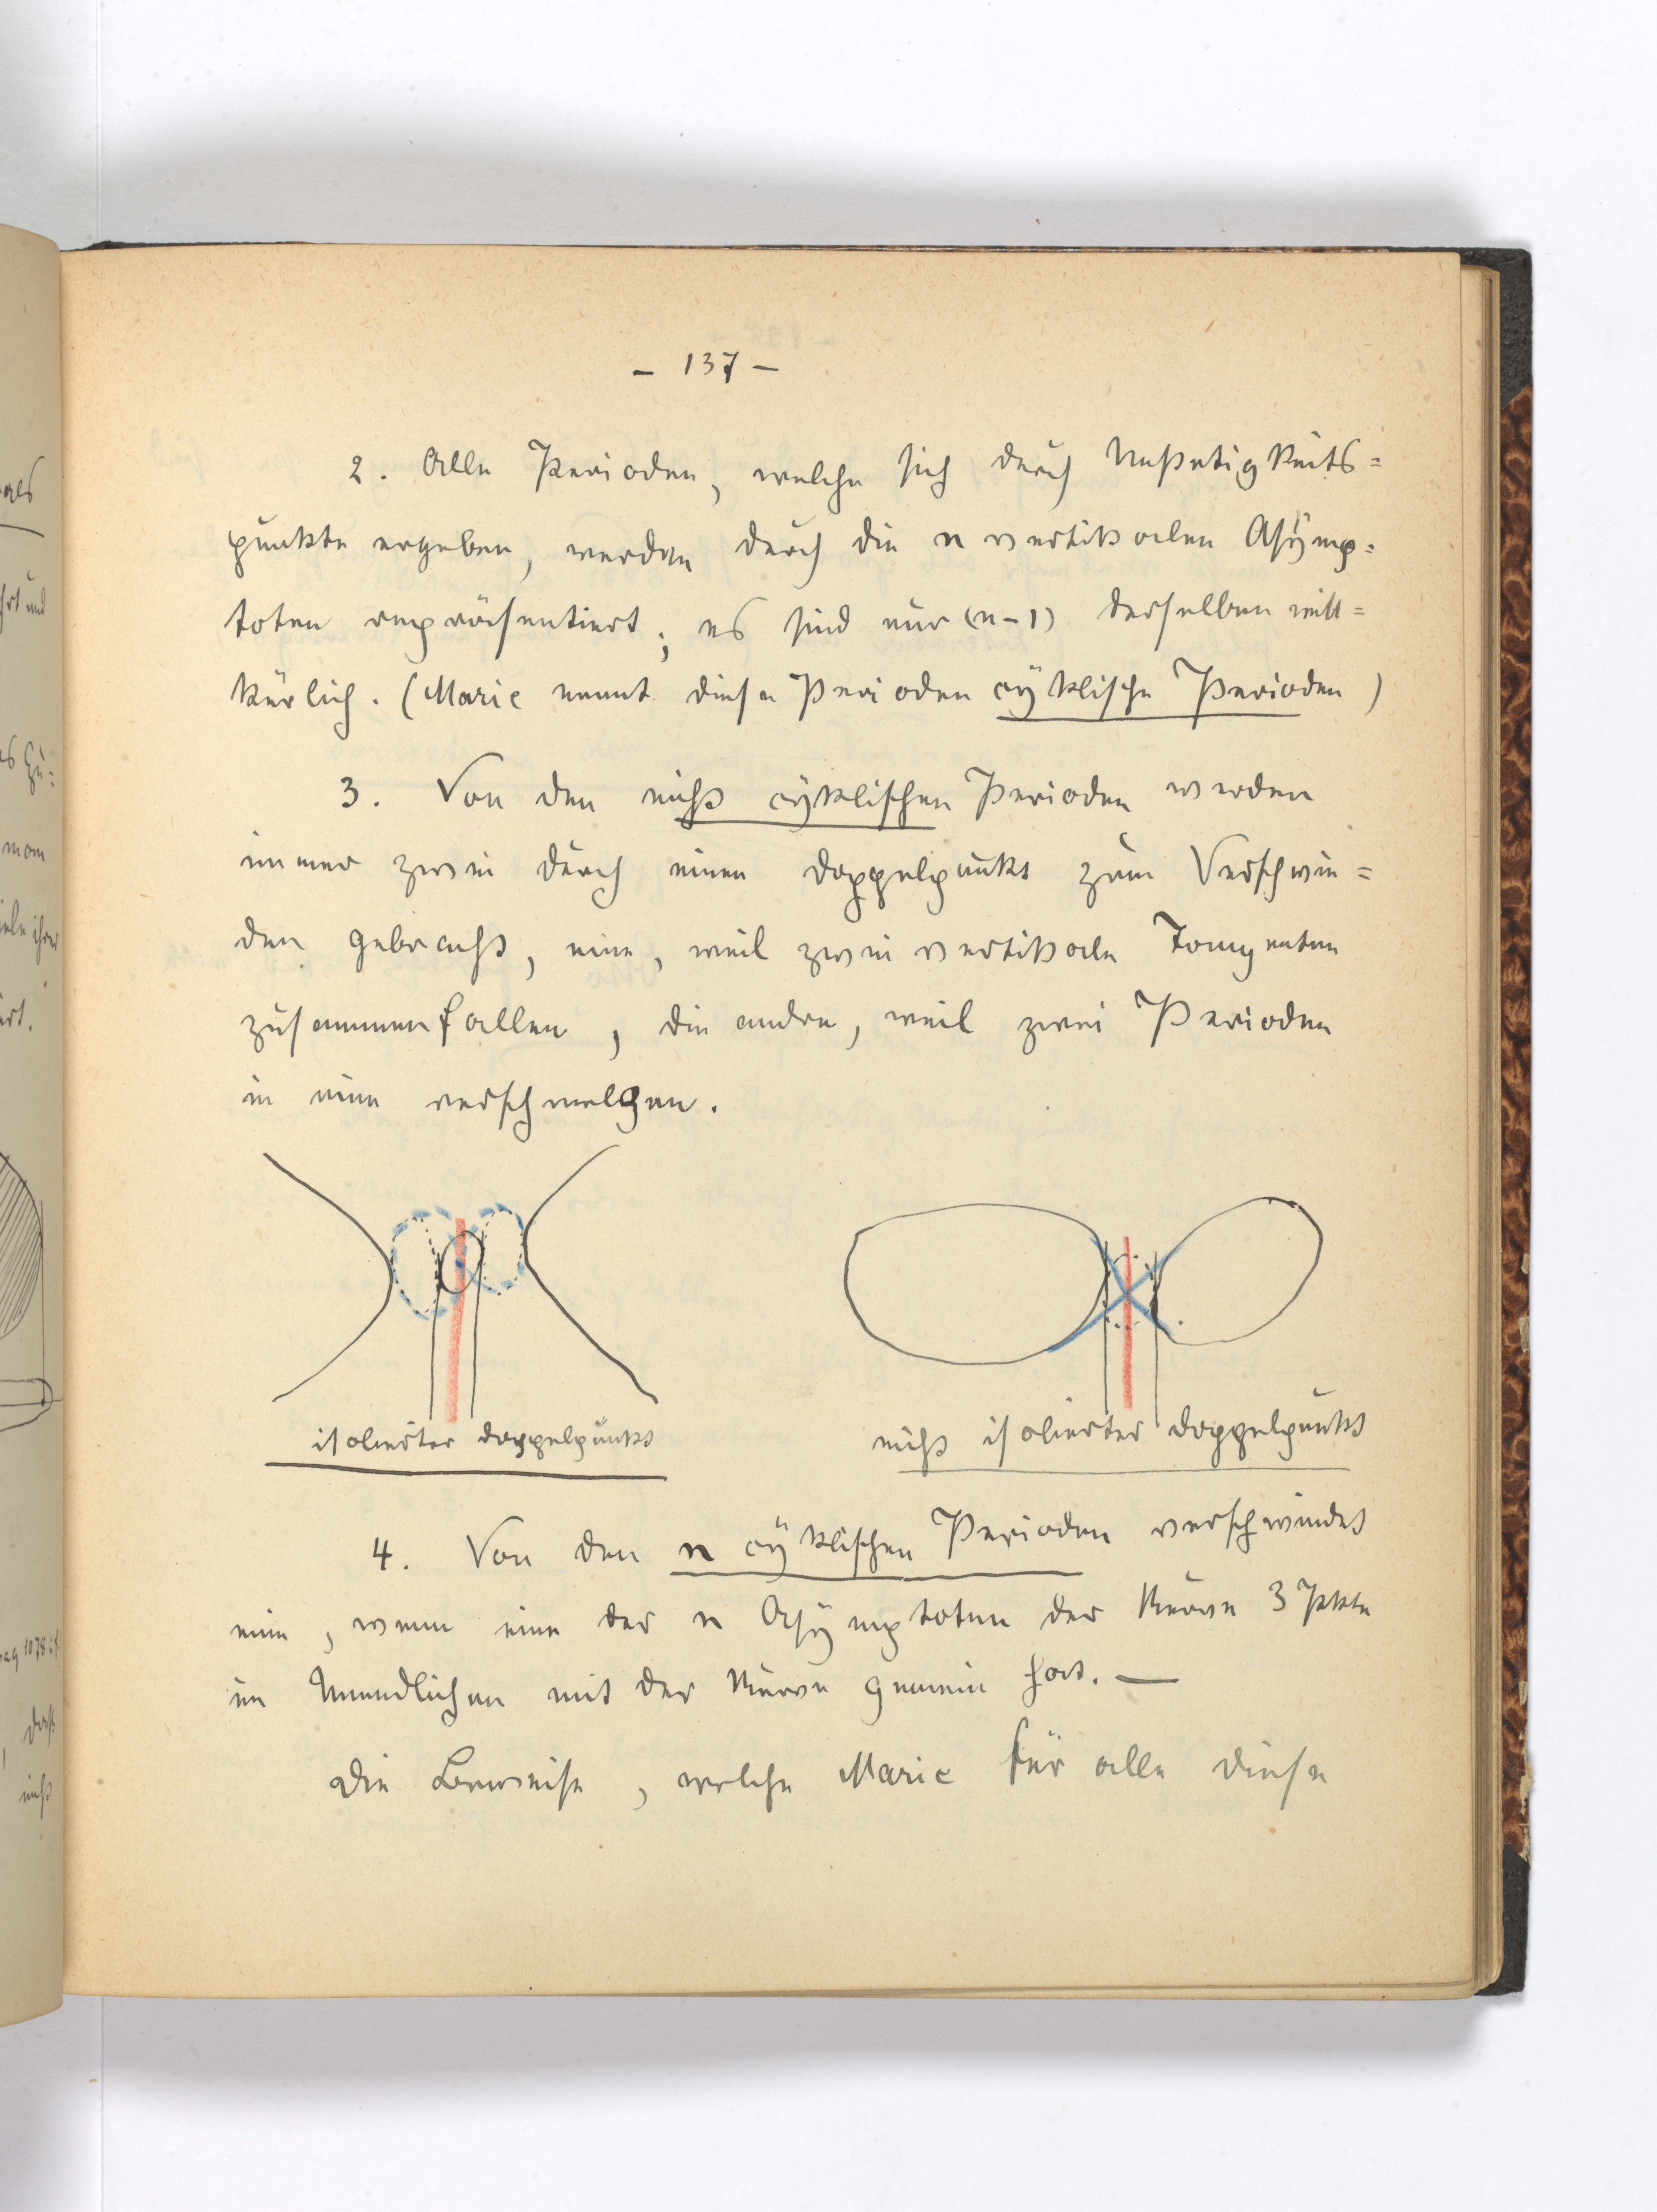 - 137 -
2. Alle Perioden, welche sich durch Unstetigkeits=
punkte ergeben, werden durch die n vertikalen Asymp=
toten repräsentiert; es sind nur (n-1) derselben will=
kürlich. (Marie nennt diese Perioden cyklische Perioden)
3. Von den nicht cyklischen Perioden werden
immer zwei durch einen Doppelpunkt zum Verschwin=
den gebracht, eine, weil zwei vertikale Tangenten
zusammenfallen, die andre, weil zwei Perioden
in eine verschmelzen.
isolierter Doppelpunkt
nicht isolierter Doppelpunkt
4. Von den n cyklischen Perioden verschwindet
eine, wenn eine der n Asymptoten der Kurve 3 Pkte
im Unendlichen mit der Kurve gemein hat. —
Die Beweise, welche Marie für alle diese
als
hrt und
mom
ihrer
iert.
pag 1078
, daß
nicht